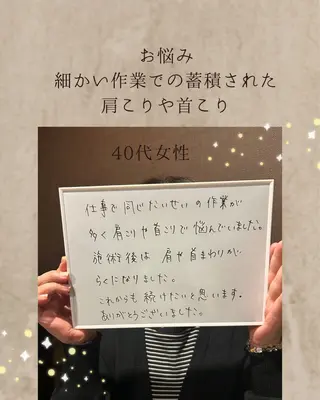 お悩み
細かい作業での蓄積された
肩こりや首こり
40代女性
仕事で同じたいせいの作業が
多く肩こりや首こりで悩んでいました。
施術後は肩や首まわりが
らくになりました。
これからも続けたいと思います。
ありがとうございました。